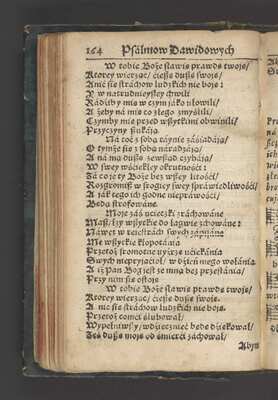 164 Psalmow Dawidowych
W tobie Boże sławię prawdę twoję/
Ktorey wierząc/ cieszę duszę swoję/
A nic sie strachow ludzkich nie boję:
Y w natrudnieyszey chwili.
Radziby mię w czym jako ułowili/
A żeby na mię co złego zmyślili/
Czymby mię przed wszytkimi obwinili/
Przyczyny szukają
Na toć z sobą táynie zásiádáją/
O tymże sie z sobą náradzáją/
A ná mą duszę zewsząd czyhają/
W swey wściekłey okrutności:
Zá co je ty Boże bez wszey litości/
Rozgromisz w srogiey swey spráwiedliwości/
A ják tego ich godne niepráwości/
Będą strofowáne.
Moje záś ucieczki zráchowáne
Masz/ łzy wszytkie do łágwie schowáne:
Náwet w reiestrách swych zápisáne
Me wszyćkie kłopotánia
Przetoż sromotne uyźrzę uciekánia
Swych nieprzyjaciół/ w dzień mego wołánia.
A iż Pan Bog jest ze mną bez przestánia/
Przy nim sie ostoję
W tobie Boże sławię prawdę twoję/
Ktorey wierząc/ cieszę duszę swoję.
A nic sie strachow ludzkich nie boję.
Przetoż comci ślubował/
Wypełniwszy/ wdzięcznieć będę dziękował/
Żeś duszę moję od śmierci záchował/
Abym